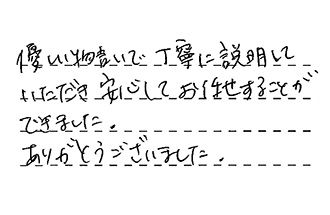 優しい物言いで丁寧に説明して
いただき安心してお任せすることが
できました。
ありがとうございました。